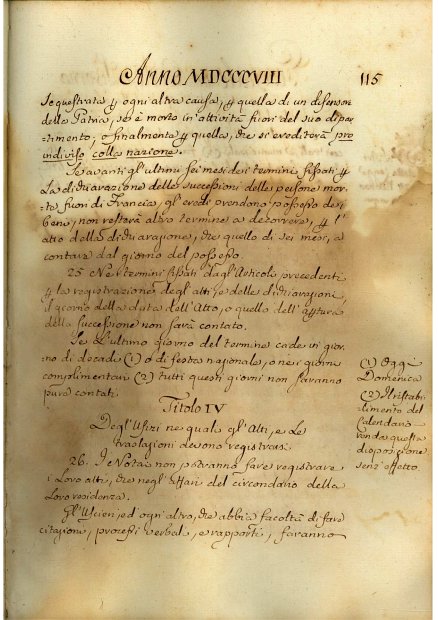 Anno MDCCCVIII
115
sequestrata p ogni altra causa, p quella di un difensor
della Patria, se è morto in attività fuori del suo dipar-
timento; o finalmente p quella, che si erediterà pro
indiviso colla nazione.
Se avanti gl'ultimi sei mesi dei termini fissati p
la dichiarazione delle successioni delle persone mor-
te fuori di Francia, gl'eredi prendono possesso dei
beni, non resterà altro termine a decorrere, p l'
atto della dichiarazione, che quello di sei mesi, a
contare dal giorno del possesso.
25 Nei termini fissati dagl'Articoli precedenti
p la registrazione degl'atti, e delle dichiarazioni,
il giorno della data dell'Atto, o quello dell'apertura
della successione non sarà contato.
Se l'ultimo giorno del termine cade in gior-
no di decade (1) o di festa nazionale, o nei giorni
complimentari (2) tutti questi giorni non saranno
pure contati.
(1) Oggi
Domenica
(2) Il ristabi-
limento del
Calendario
renda questa
disposizione
senz'effetto
Titolo IV
Degl'Ufizi ne' quali gl'Atti, e le
traslazioni devono registrarsi
26. I Notai non potranno fare registrare
i loro atti, che negl'Uffizi del circondario della
loro residenza.
Gl'Uscieri, ed ogni altro, che abbia facoltà di fare
citazioni, processi verbali, e rapporti, faranno